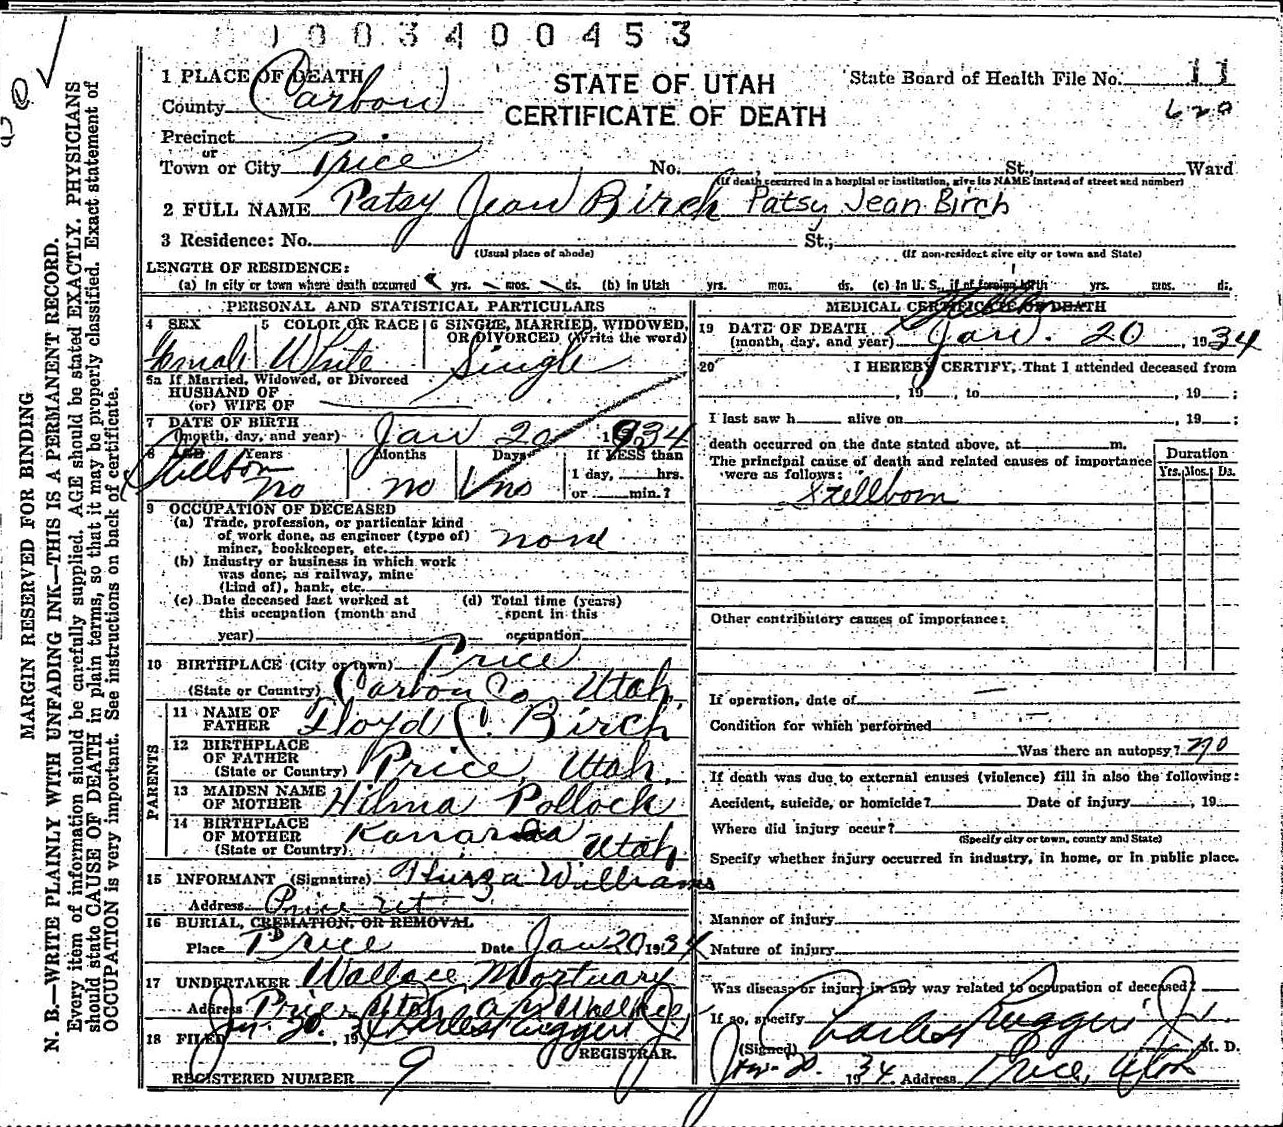 0003400453
1 PLACE OF DEATH
County Carbon
STATE OF UTAH
CERTIFICATE OF DEATH
State Board of Health File No. 11
620
Precinct
or
Town or City Price No. St., Ward
(If death occurred in a hospital or institution, give its NAME instead of street and number)
2 FULL NAME Patsy Jean Birch Patsy Jean Birch
3 Residence: No. St.,
(Usual place of abode) (If non-resident give city or town and State)
LENGTH OF RESIDENCE:
(a) In city or town where death occurred yrs. mos. ds. (b) In Utah yrs. mos. ds. (c) In U. S., if of foreign birth yrs. mos. ds.
PERSONAL AND STATISTICAL PARTICULARS
4 SEX 5 COLOR OR RACE 6 SINGLE, MARRIED, WIDOWED, OR DIVORCED (Write the word)
Female White Single
5a If Married, Widowed, or Divorced
HUSBAND OF
(or) WIFE OF
7 DATE OF BIRTH
(month, day, and year) Jan 20 1934
6 AGE Years Months Days If LESS than
1 day, hrs.
or min.?
Stillborn no no no
9 OCCUPATION OF DECEASED
(a) Trade, profession, or particular kind
of work done, as engineer (type of)
miner, bookkeeper, etc. none
(b) Industry or business in which work
was done; as railway, mine
(kind of), bank, etc.
(c) Date deceased last worked at
this occupation (month and
year)
(d) Total time (years)
spent in this
occupation
10 BIRTHPLACE (City or town) Price
(State or Country) Carbon Co, Utah.
PARENTS
11 NAME OF
FATHER Floyd C. Birch
12 BIRTHPLACE
OF FATHER
(State or Country) Price, Utah.
13 MAIDEN NAME
OF MOTHER Hilma Pollock
14 BIRTHPLACE
OF MOTHER
(State or Country) Utah
15 INFORMANT (Signature) Thirza Williams
Address Price Ut
16 BURIAL, CREMATION, OR REMOVAL
Place Price Date Jan 20, 1934
17 UNDERTAKER Wallace Mortuary
Address Price Utah
18 FILED Jan. 20, 1934 Charles Ruggeri Jr
REGISTRAR.
REGISTERED NUMBER 9
MEDICAL CERTIFICATE OF DEATH
19 DATE OF DEATH
(month, day, and year) Jan. 20, 1934
20 I HEREBY CERTIFY, That I attended deceased from
, 19 , to , 19 ;
I last saw h alive on , 19 ;
death occurred on the date stated above, at m.
The principal cause of death and related causes of importance
were as follows:
Duration
Yrs. Mos. Ds.
Stillborn
Other contributory causes of importance:
If operation, date of —
Condition for which performed —
Was there an autopsy? no
If death was due to external causes (violence) fill in also the following:
Accident, suicide, or homicide? Date of injury , 19
Where did injury occur?
(Specify city or town, county and State)
Specify whether injury occurred in industry, in home, or in public place.
Manner of injury
Nature of injury
Was disease or injury in any way related to occupation of deceased?
If so, specify
(Signed) Charles Ruggeri Jr. M. D.
Jan. 20. 1934. Address Price, Utah
MARGIN RESERVED FOR BINDING
N. B.—WRITE PLAINLY WITH UNFADING INK—THIS IS A PERMANENT RECORD.
Every item of information should be carefully supplied. AGE should be stated EXACTLY. PHYSICIANS
should state CAUSE OF DEATH in plain terms, so that it may be properly classified. Exact statement of
OCCUPATION is very important. See instructions on back of certificate.